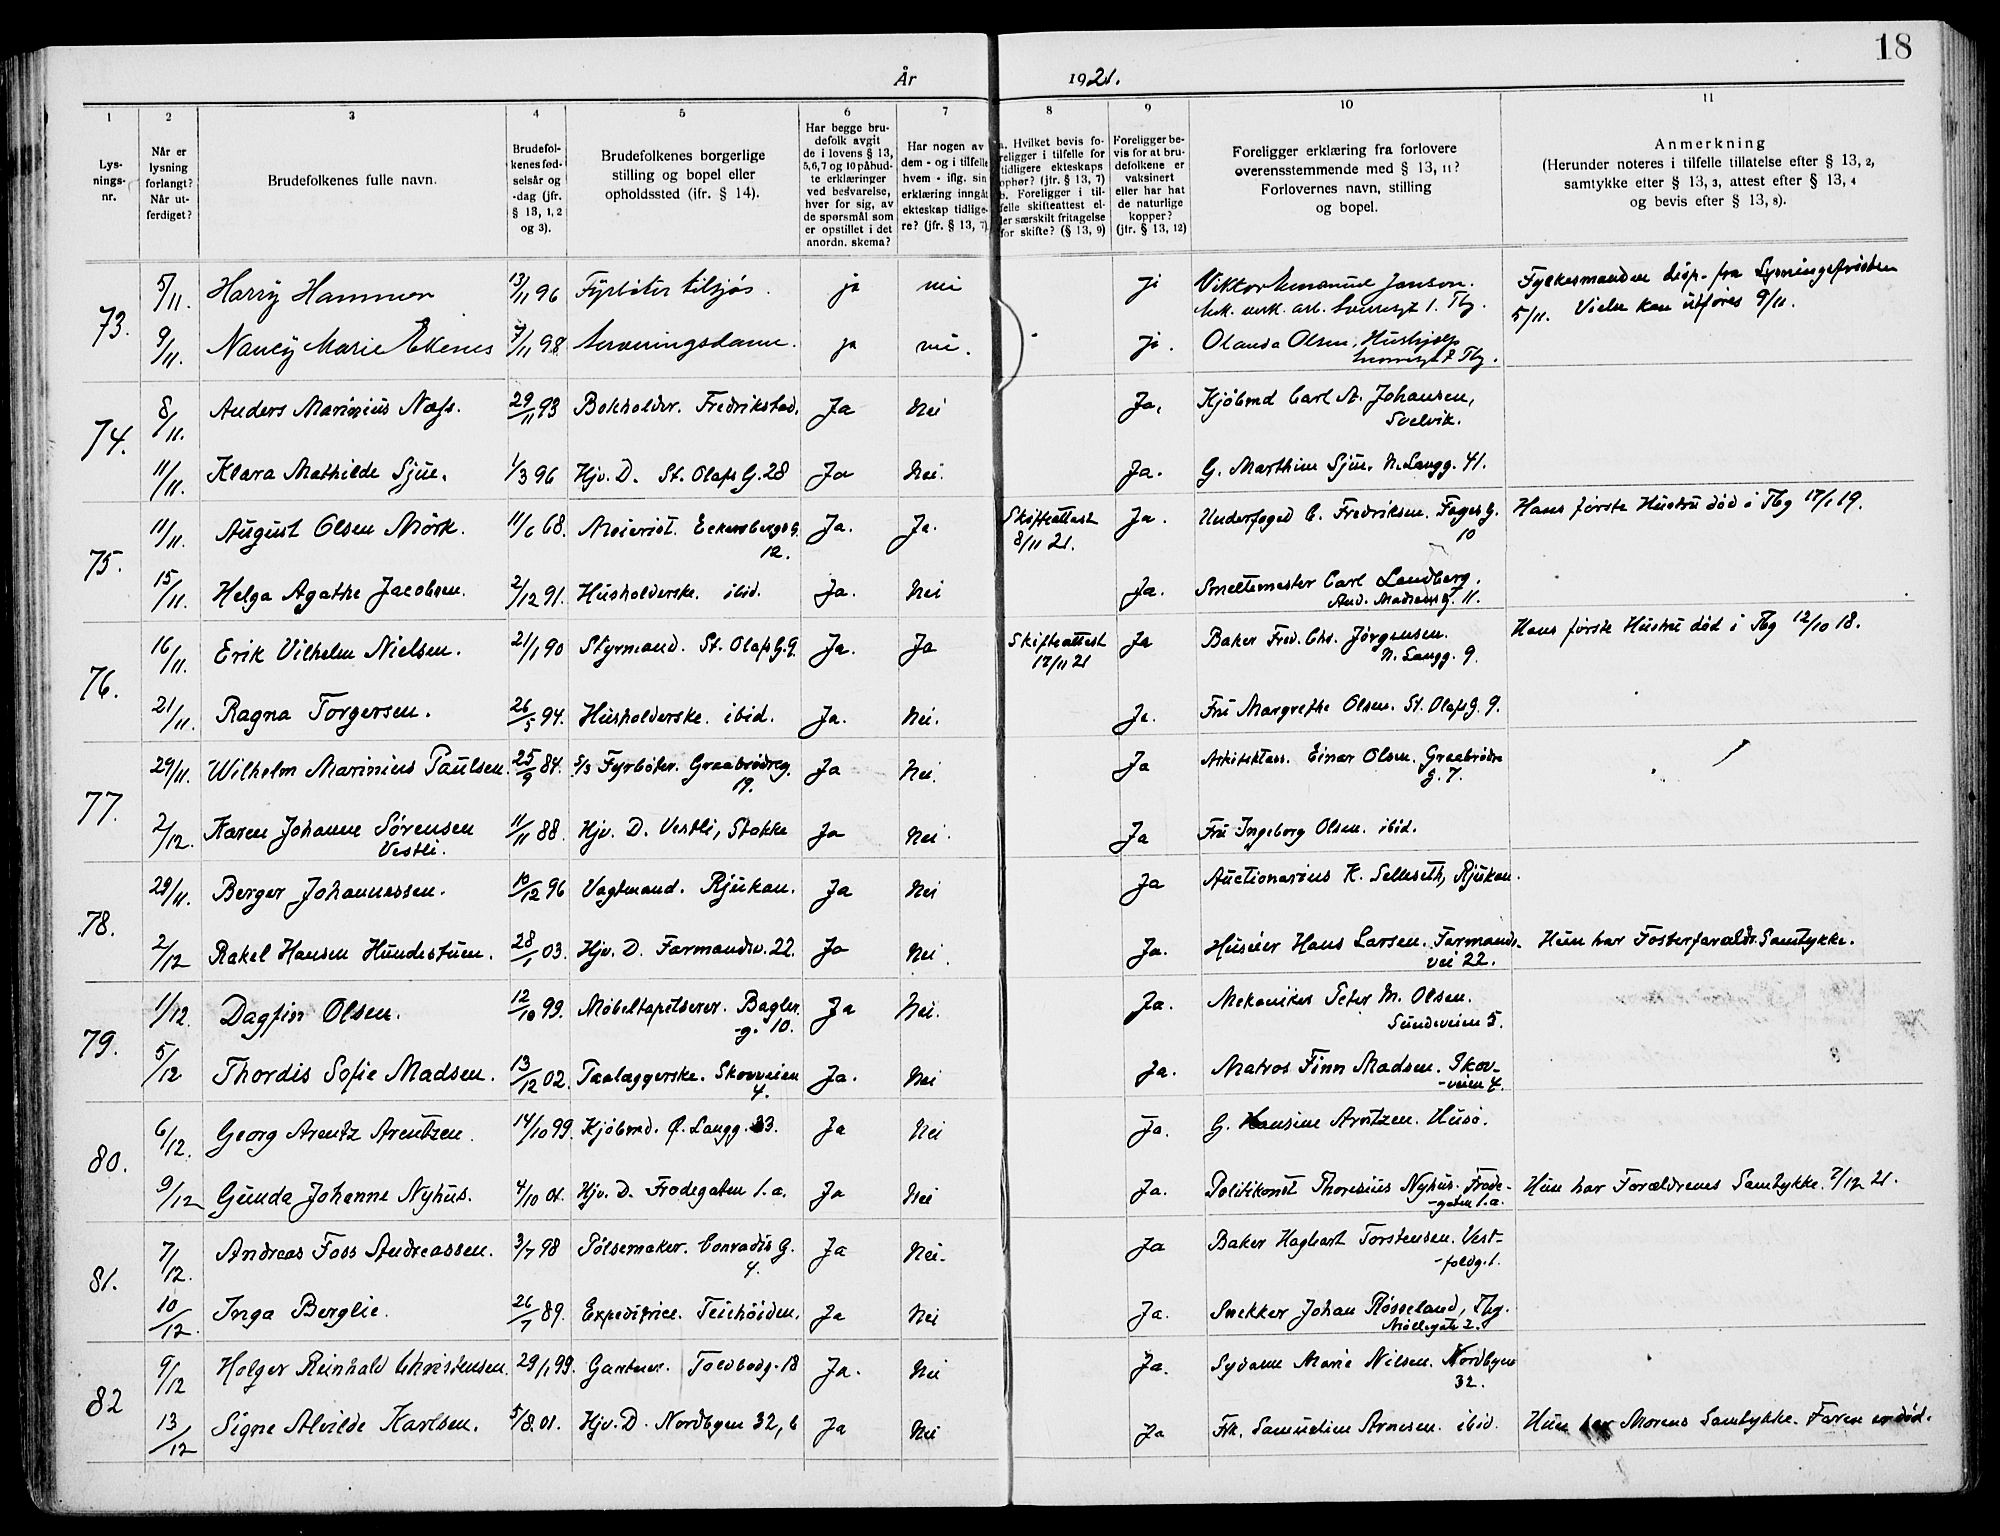 18
År 1921.
1 2 3 4 5 6 7 8 9 10 11
Lysnings-nr.
Når er lysning forlangt? Når utferdiget?
Brudefolkenes fulle navn.
Brudefolkenes fødselsår og -dag (jfr. § 13, 1, 2 og 3).
Brudefolkenes borgerlige stilling og bopel eller opholdssted (jfr. § 14).
Har begge brudefolk avgit de i lovens § 13, 5,6,7 og 10 påbudte erklæringer ved besvarelse, hver for sig, av de spørsmål som er opstillet i det anordn. skema?
Har nogen av dem - og i tilfelle hvem - iflg. sin erklæring inngåt ekteskap tidligere? (jfr. § 13, 7)
a. Hvilket bevis foreligger i tilfelle for tidligere ekteskaps ophør? (jfr. § 13, 7) b. Foreligger i tilfelle skifteattest eller særskilt fritagelse for skifte? (§ 13, 9)
Foreligger bevis for at brudefolkene er vaksinert eller har hat de naturlige kopper? (jfr. § 13, 12)
Foreligger erklæring fra forlovere overensstemmende med § 13, 11? Forlovernes navn, stilling og bopel.
Anmerkning (Herunder noteres i tilfelle tillatelse efter § 13, 2, samtykke etter § 13, 3, attest efter § 13, 4 og bevis efter § 13, 8).
73. 5/11. Harry Hammer 13/11 96 Fyrbøter tilsjøs. ja nei ja Viktor Emanuel Jonson. Fylkesmanden disp. fra Lysningsfristen
5/11. Vielse kan utføres 9/11.
9/11. Nancy Marie Ekenes 7/11 98 Serveringsdame. ja nei. ja. Olanda Olsen, Hushjelp
74. 8/11. Anders Marinius Næss. 29/11 93 Bokholder. Fredrikstad. Ja Nei Ja, Kjöbmd Carl A. Johansen,
Svelvik.
11/11. Klara Mathilde Sjue. 1/3 96 Hjv. D. St. Olafs G. 28 Ja Nei. Ja. G. Marthine Sjue. N. Langg. 41.
75. 11/11. August Olsen Mørk. 11/6 68. Meierist. Eckersbergs G. 12. Ja. Ja. Skifteattest 8/11 21. Ja. Underfoged C. Fredriksen. Fayes G. 10 Hans første Hustru död i Tbg 17/1 19.
15/11. Helga Agathe Jacobsen. 2/12 91. Husholderske. ibid. Ja. Nei Ja. Smeltemester Carl Lundberg.
And. Madsens G. 11.
76. 16/11. Erik Vilhelm Nielsen. 21/1 90 Styrmand. St. Olafs G. 9. Ja. Ja Skifteattest 17/11 21 Ja Baker Fred. Chr. Jørgensen. N. Langg. 9. Hans første Hustru död i Tbg 12/10 18.
21/11. Ragna Torgersen. 26/5 94. Husholderske. ibid. Ja. Nei. Ja. Fru Margrethe Olsen. St. Olafs G. 9.
77. 29/11. Wilhelm Marinius Paulsen. 25/9 84. s/s Fyrböter. Graabrödreg. 19. Ja Nei. Ja Arkitektass. Einar Olsen. Graabrödre g. 7.
2/12. Karen Johanne Sørensen Vestli. 11/11 88. Hjv. D. Vestli, Stokke Ja Nei. Ja Fru Ingeborg Olsen. ibid.
78. 29/11. Berger Johannessen. 10/12 96 Vagtmand. Rjukan. Ja Nei Ja Auctionarius K. Selleseth, Rjukan.
2/12 Rakel Hansen Hundestuen. 28/1 03. Hjv. D. Farmandsv. 22. Ja Nei. Ja. Huseier Hans Larsen. Farmands-vei 22. Hun har Fosterforældr. Samtykke.
79. 1/12. Dagfin Olsen. 12/10 99. Møbeltapetserer. Bagler-g. 10. Ja Nei. Ja. Mekaniker Peter M. Olsen.
Sundeveien 5.
5/12 Thordis Sofie Madsen. 13/12 02. Taalæggerske. Skovveien 4. Ja. Nei Ja. Matros Finn Madsen. Skov-veien 4.
80. 6/12. Georg Arentz Arentzen. 14/10 99. Kjöbmd. Ø. Langg. 33. Ja Nei Ja. G. Hansine Arntzen. Husö.
9/12 Gunda Johanne Nyhus. 4/10 01. Hjv. D. Frodegaten 1.a. Ja Nei Ja. Politikonst Thoresius Nyhus. Frode-gaten 1.a. Hun har Forældrenes Samtykke. 7/12 21.
81. 7/12. Andreas Foss Andreassen. 3/7 98 Pölsemaker. Conradis G. 4. Ja Nei. Ja Baker Hagbart Torstensen. Vest-foldg. 1.
10/12. Inga Berglie. 26/7 89. Expeditrice. Teichöiden. Ja Nei Ja. Snekker Johan Røsseland, Tbg.
Møllegate 2.
82 9/12 Holger Reinhald Christensen. 29/1 99. Gartner. Toldbodg. 18 Ja. Nei Ja. Sydame Marie Nilsen. Nordbyen 32.
13/12 Signe Alvilde Karlsen. 5/8 01. Hjv. D. Nordbyen 32, 6 Ja Nei Ja Frk. Samueline Arnesen. ibid. Hun har Morens Samtykke. Faren er död.